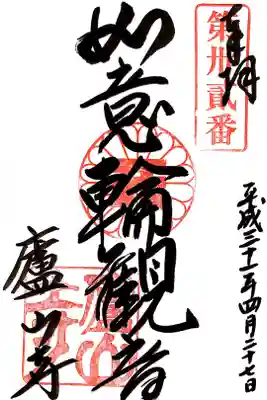 奉拝
第卅貳番
平成二十一年四月二十七日
如意輪観音
廬山寺